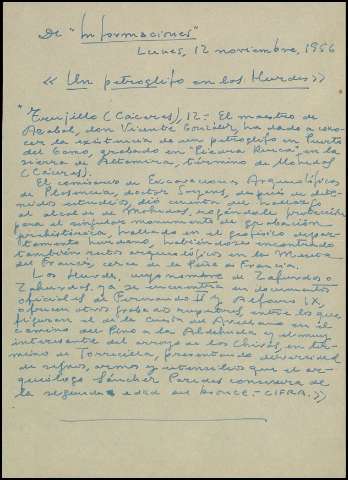 De "Informaciones"
Lunes, 12 noviembre, 1956
<< Un petroglifo en las Hurdes >>
"Trujillo (Cáceres), 12 = El maestro de
don Vicente González, ha dado a cono-
cer la existencia de un petroglifo en Puerto
del Gamo, grabado en "Pizarra Rusca", en la
sierra de Altamira, término de Mohedas
(Cáceres).
El comisario de Excavaciones Arqueológicas
de Plasencia, doctor Sayans, después de dete-
nidos estudios, dió cuenta del hallazgo
al alcalde de Mohedas, rogándole protección
para el singular monumento de grabación
prehistórica, hallado en el
hurdano, habiéndose encontrado
también restos arqueológicos en la Meseta
del Francés, cerca de la Peña de Francia.
Las Hurdes, cuyo nombre de
ya se encuentra en documentos
oficiales de Fernando II y Alfonso IX,
ofrecen otros grabados rupestres, entre los que
figuran el de la Cuesta de Arcelano en el
camino del Pino a la Aldehuela y el muy
interesante del arroyo de las Chivas, en tér-
mino de Torrecilla, presentando diversidad
de signos, armas y utensilios que el ar-
queólogo Sánchez Paredes considera de
la segunda edad del bronce = CIFRA. >>